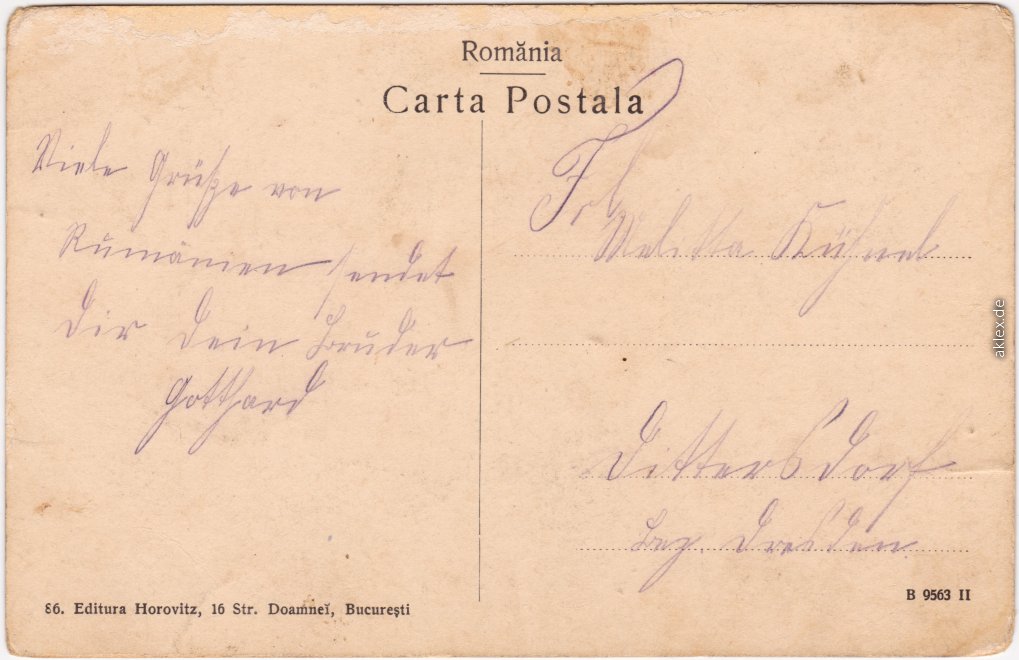 România
Carta Postala
Viele Grüße von
Rumänien sendet
Dir Dein Bruder
Gotthard
Frl
Melitta Kühnel
Dittersdorf
Bez. Dresden
86. Editura Horovitz, 16 Str. Doamneĭ, Bucureşti
B 9563 II
aklex.de